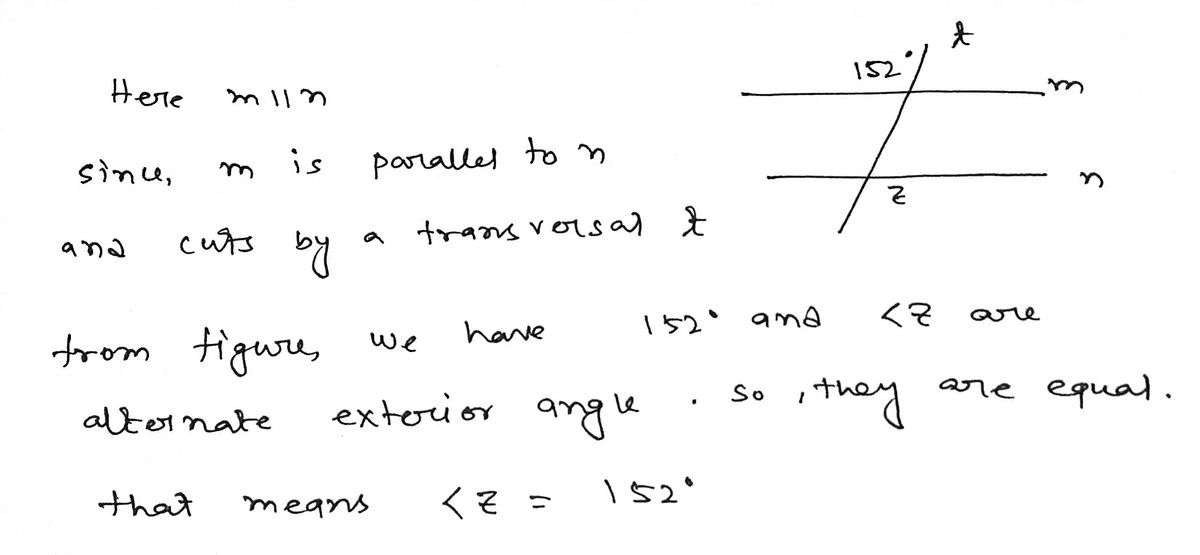 t
152°
m
Here m || n
since, m is parallel to n
n
z
and cuts by a transversal t
from figure, we have 152° and <z are
alternate exterior angle. so, they are equal.
that means <z = 152°